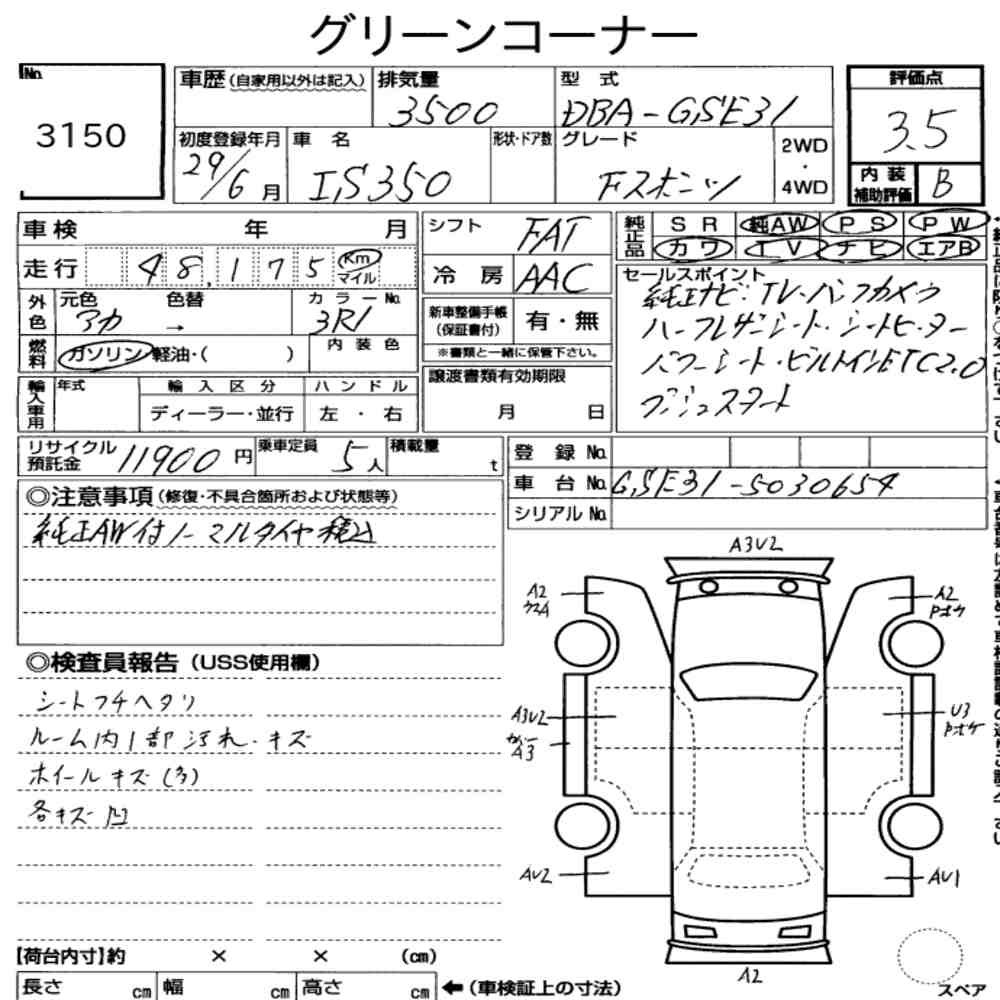 グリーンコーナー
No.
3150
車歴(自家用以外は記入)
排気量
3500
型 式
DBA-GSE31
評価点
3.5
初度登録年月
29/6月
車 名
IS350
形状・ドア数
グレード
Fスポーツ
2WD
・
4WD
内 装
補助評価
B
車検 年 月
走行 48,175 Km マイル
シフト
FAT
冷 房
AAC
純正品
SR 純AW PS PW
カワ TV ナビ エアB
外色
元色 色替 カラーNo.
アカ → 3R1
新車整備手帳
(保証書付)
有・無
※書類と一緒に保管下さい。
セールスポイント
純正ナビ・TV・バックカメラ
ハーフレザーシート・シートヒーター
パワーシート・ビルトインETC2.0
プッシュスタート
燃料
ガソリン・軽油・( )
内 装 色
輸入車用
年式
輸 入 区 分
ディーラー・並行
ハ ン ド ル
左 ・ 右
譲渡書類有効期限
月 日
リサイクル
預託金
11900円
乗車定員
5人
積載量
t
登 録 No.
車 台 No. GSE31-5030654
シリアル No.
◎注意事項(修復・不具合箇所および状態等)
純正AW付ノーマルタイヤ積込
◎検査員報告(USS使用欄)
シートフチヘタリ
ルーム内1部汚れ・キズ
ホイールキズ(多)
各キズ凹
A3U2
A2
A2
Pボケ
A3U2
A3
U3
Pボケ
AU2
AU1
A2
スペア
【荷台内寸】約 × × (cm)
長さ cm 幅 cm 高さ cm
←(車検証上の寸法)